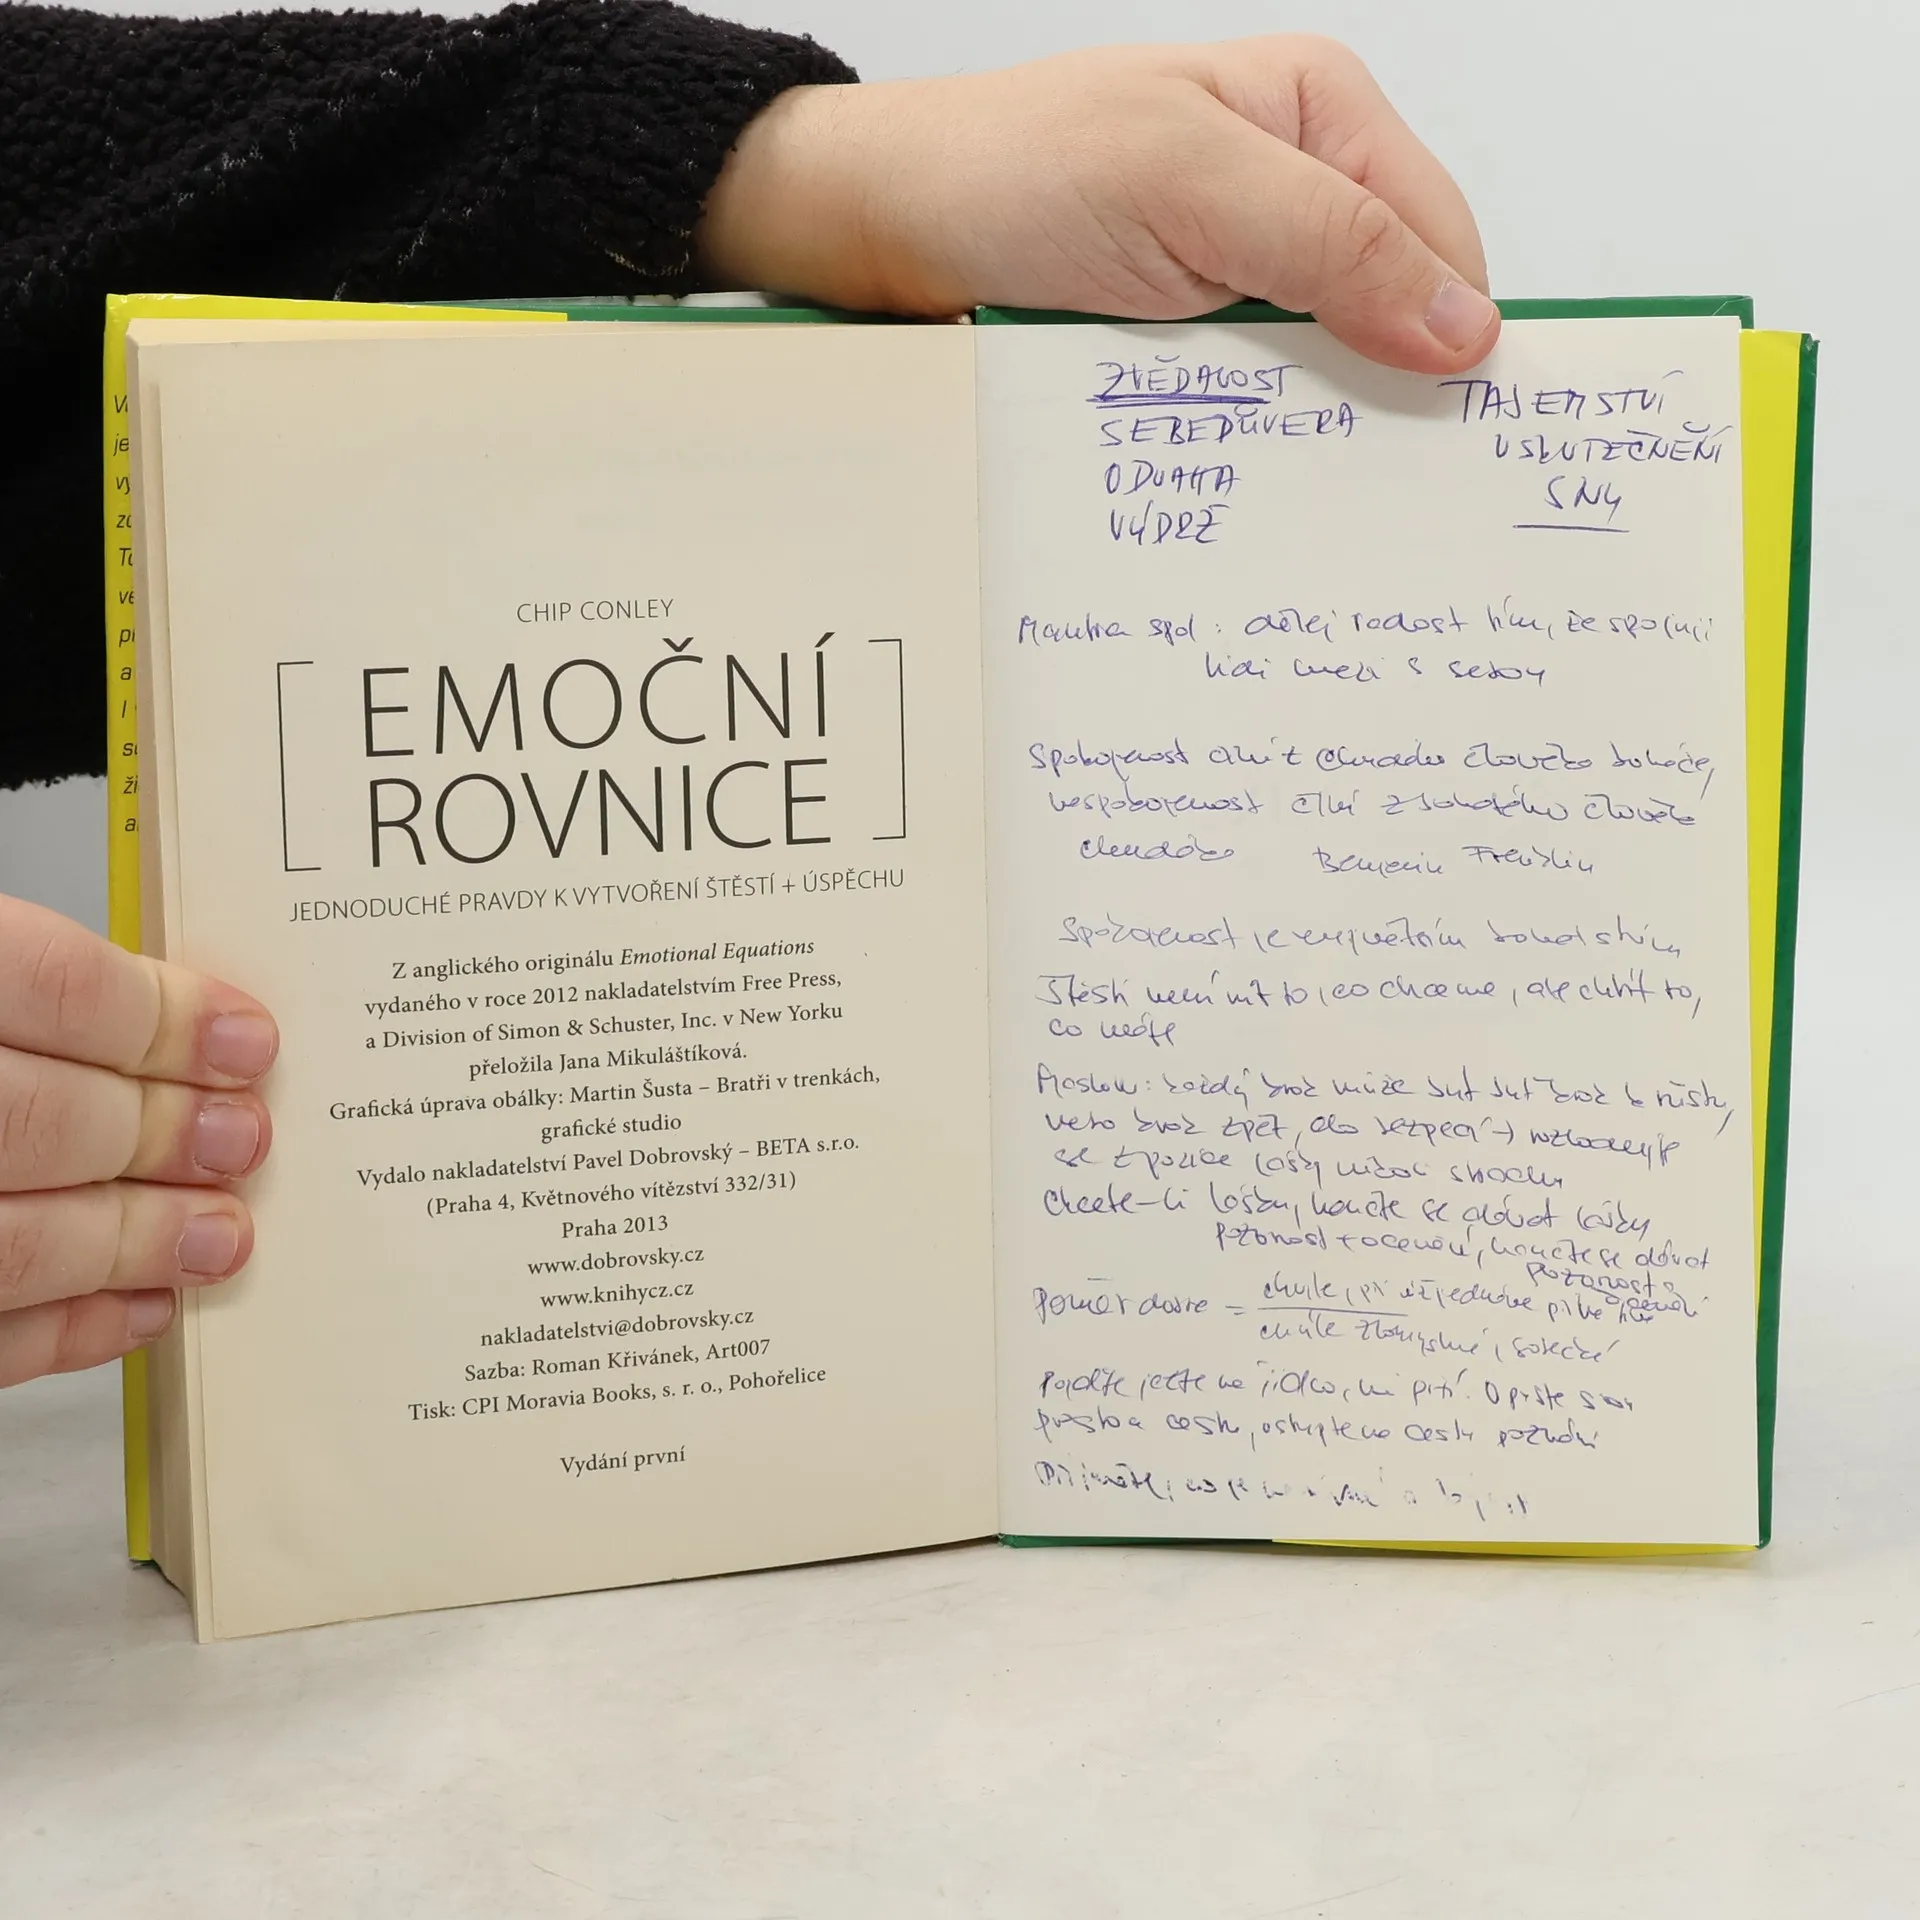 CHIP CONLEY
EMOČNÍ
ROVNICE
JEDNODUCHÉ PRAVDY K VYTVOŘENÍ ŠTĚSTÍ + ÚSPĚCHU
Z anglického originálu Emotional Equations
vydaného v roce 2012 nakladatelstvím Free Press,
a Division of Simon & Schuster, Inc. v New Yorku
přeložila Jana Mikuláštíková.
Grafická úprava obálky: Martin Šusta – Bratři v trenkách,
grafické studio
Vydalo nakladatelství Pavel Dobrovský – BETA s.r.o.
(Praha 4, Květnového vítězství 332/31)
Praha 2013
www.dobrovsky.cz
www.knihycz.cz
nakladatelstvi@dobrovsky.cz
Sazba: Roman Křivánek, Art007
Tisk: CPI Moravia Books, s. r. o., Pohořelice
Vydání první
ZVĚDAVOST
SEBEDŮVERA
ODVAHA
VÝDRŽ
TAJEMSTVÍ
USKUTEČNĚNÍ
SNŮ
Mantra spol : dělej radost tím, že spojuji
lidi mezi s sebou
Spokojenost činí z chudého člověka boháče,
nespokojenost činí z bohatého člověka
chudáka Benjamin Franklin
Spokojenost je největším bohatstvím
Štěstí není mít to, co chceme, ale chtít to,
co máte
Maslow: každý krok může být být krok k růstu,
nebo krok zpět, do bezpečí →
se z pozice lásky nikoli strachu
Chcete-li lásku, naučte se dávat lásku
pozornost + ocenění, naučte se dávat
pozornost a
ocenění
Poměr = chvíle, při
chvíle
Pojďte ještě na jídlo, na pití. Opusťte svou
cestu, vstupte na cestu poznání
Přijměte, co je